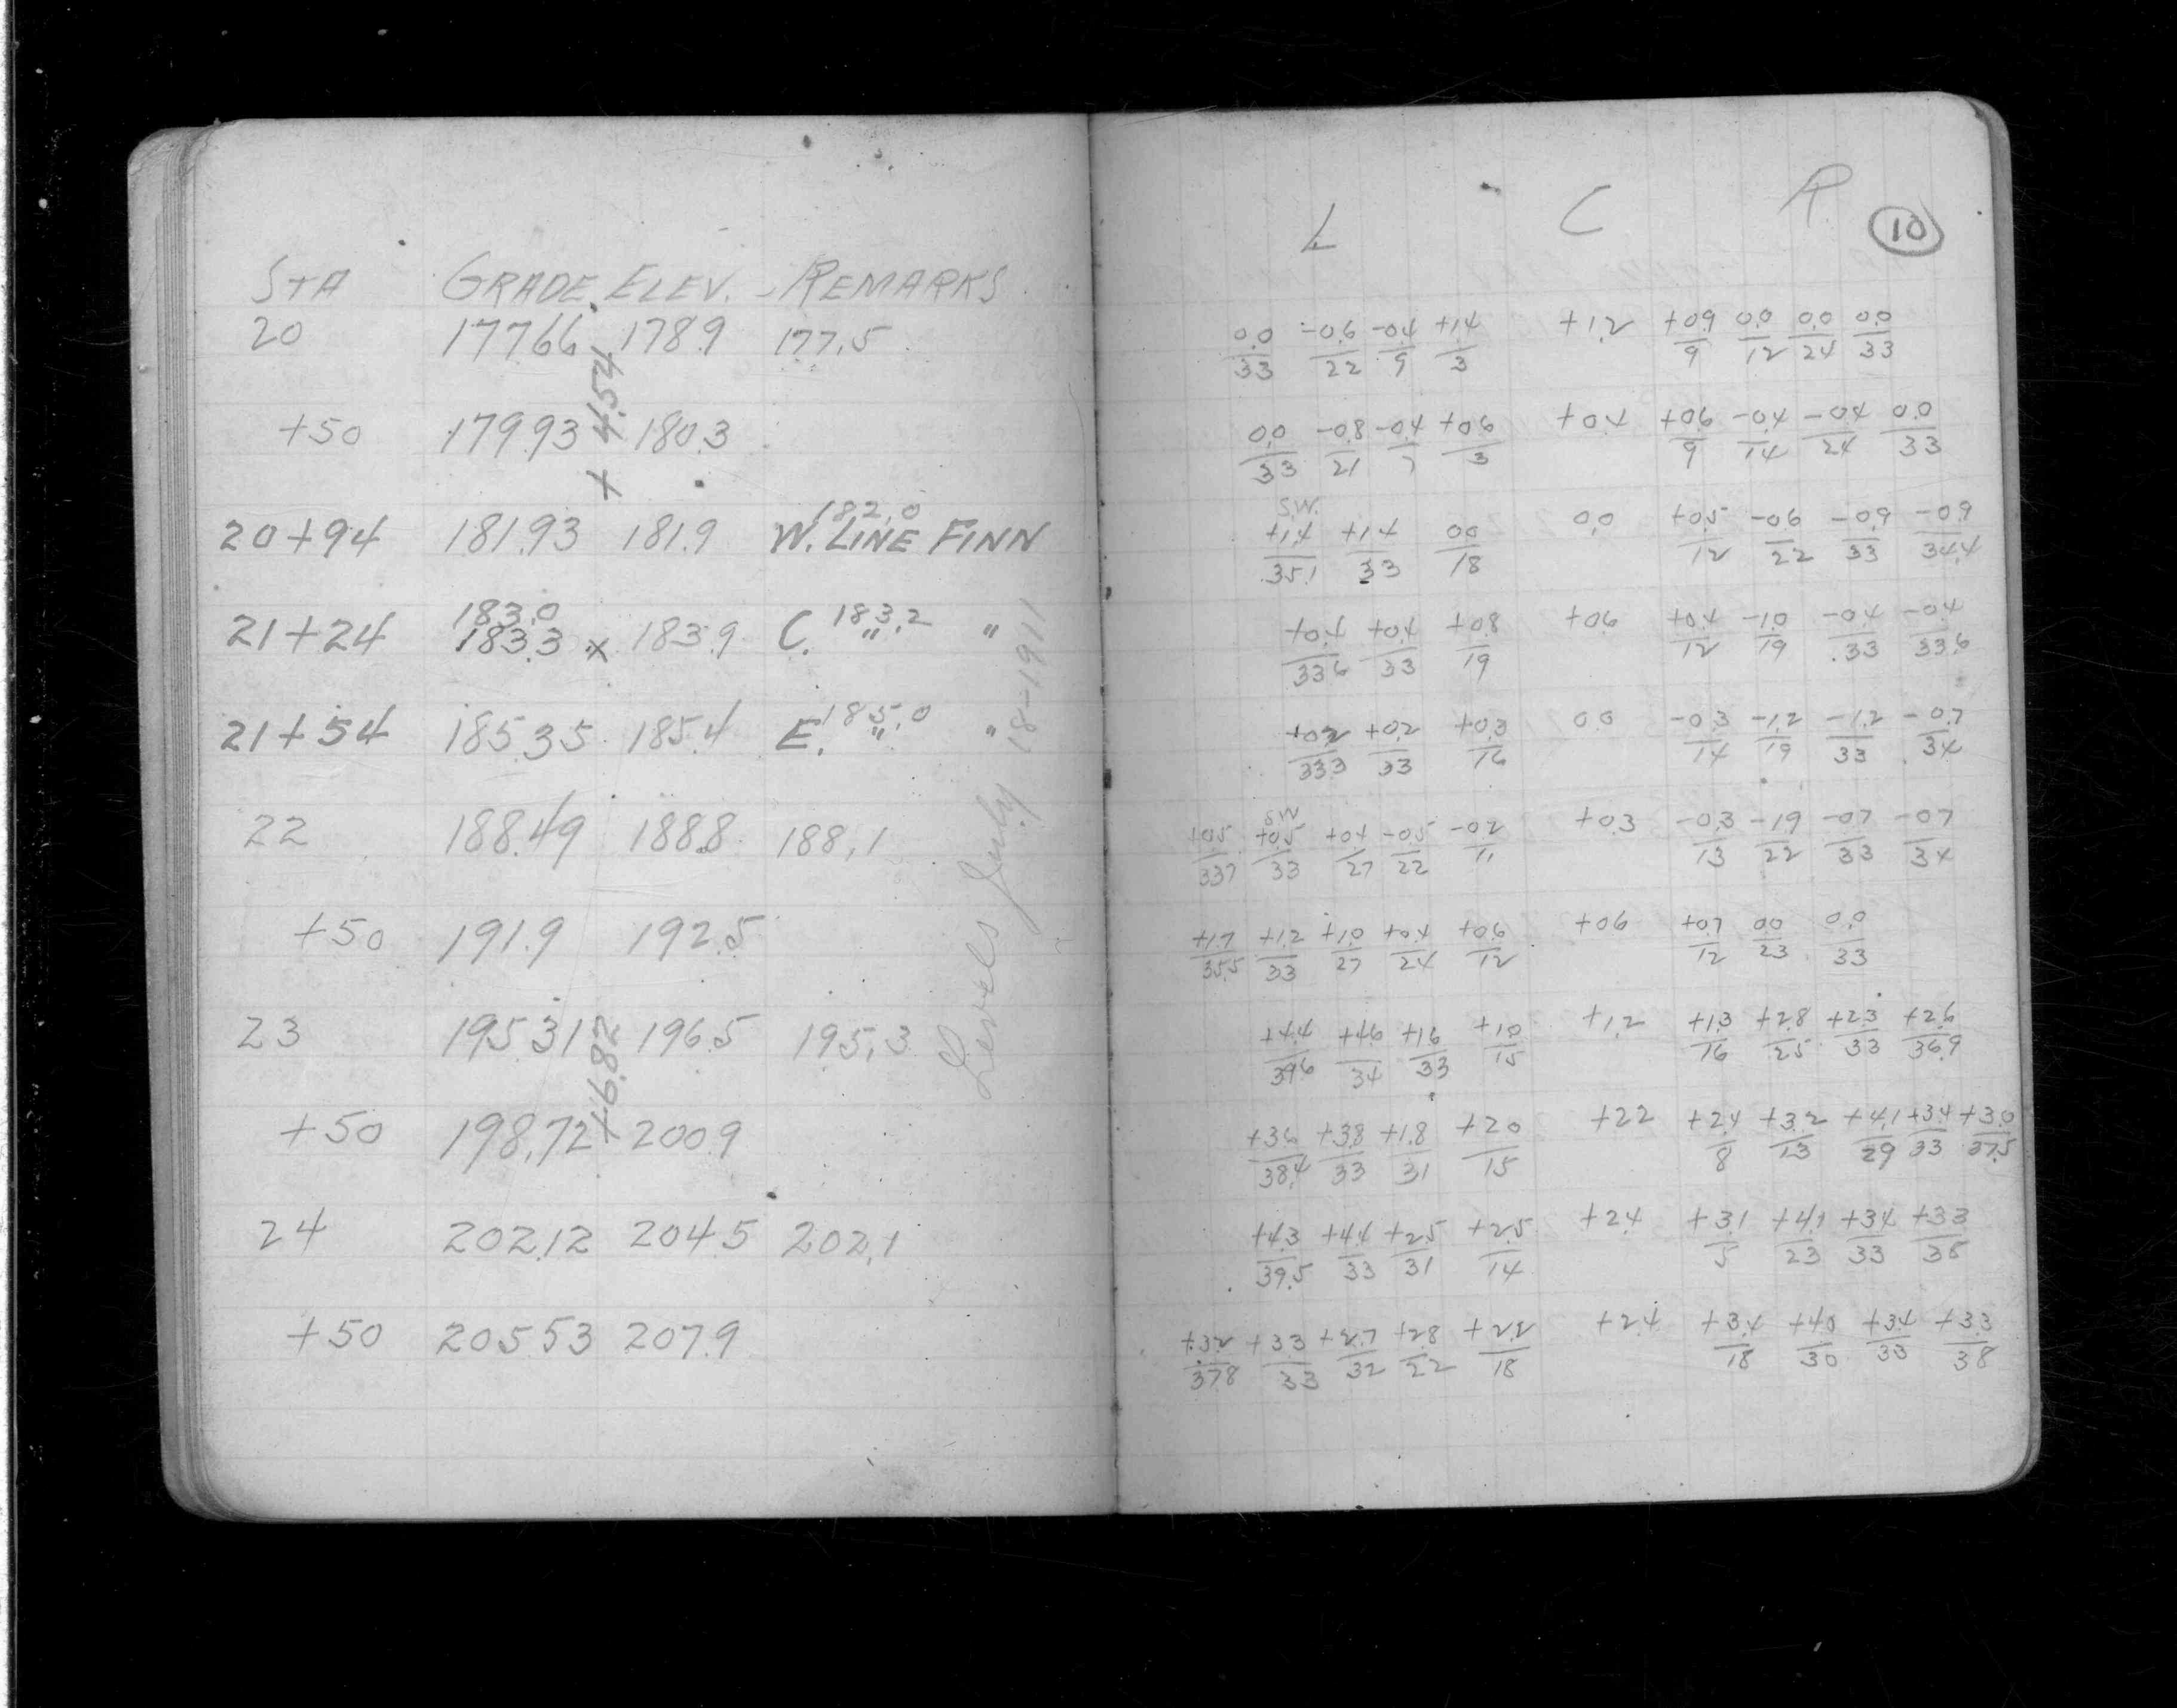 STA GRADE ELEV. REMARKS
20 177.66 178.9 177.5
+ 4.54
+50 179.93 180.3
182.0
20+94 181.93 181.9 W. LINE FINN
183.0
21+24 183.3 x 183.9 C. " 183.2 "
21+54 185.35 185.4 E. " 185.0 "
22 188.49 188.8 188.1
+50 191.9 192.5
23 195.31 196.5 195.3
+6.82
+50 198.72 200.9
24 202.12 204.5 202.1
+50 205.53 207.9
Levels July 18-1911
L C R
10
0.0 -0.6 -0.4 +1.4 +1.2 +0.9 0.0 0.0 0.0
33 22 9 3 9 12 24 33
0.0 -0.8 -0.4 +0.6 +0.4 +0.6 -0.4 -0.4 0.0
33 21 7 3 9 14 24 33
S.W.
+1.4 +1.4 0.0 0.0 +0.5 -0.6 -0.9 -0.9
35.1 33 18 12 22 33 34.4
+0.4 +0.4 +0.8 +0.6 +0.4 -1.0 -0.4 -0.4
33.6 33 19 12 19 33 33.6
+0.2 +0.2 +0.3 0.0 -0.3 -1.2 -1.2 -0.7
33.3 33 16 14 19 33 34
SW
+0.5 +0.5 +0.4 -0.5 -0.2 +0.3 -0.3 -1.9 -0.7 -0.7
33.7 33 27 22 11 13 22 33 34
+1.7 +1.2 +1.0 +0.4 +0.6 +0.6 +0.7 0.0 0.0
35.5 33 27 24 12 12 23 33
+4.4 +4.6 +1.6 +1.0 +1.2 +1.3 +2.8 +2.3 +2.6
39.6 34 33 15 16 25 33 36.9
+3.6 +3.8 +1.8 +2.0 +2.2 +2.4 +3.2 +4.1 +3.4 +3.0
38.4 33 31 15 8 13 29 33 37.5
+4.3 +4.4 +2.5 +2.5 +2.4 +3.1 +4.1 +3.4 +3.3
39.5 33 31 14 5 23 33 38
+3.2 +3.3 +2.7 +2.8 +2.2 +2.4 +3.4 +4.0 +3.4 +3.3
37.8 33 32 22 18 18 30 33 38